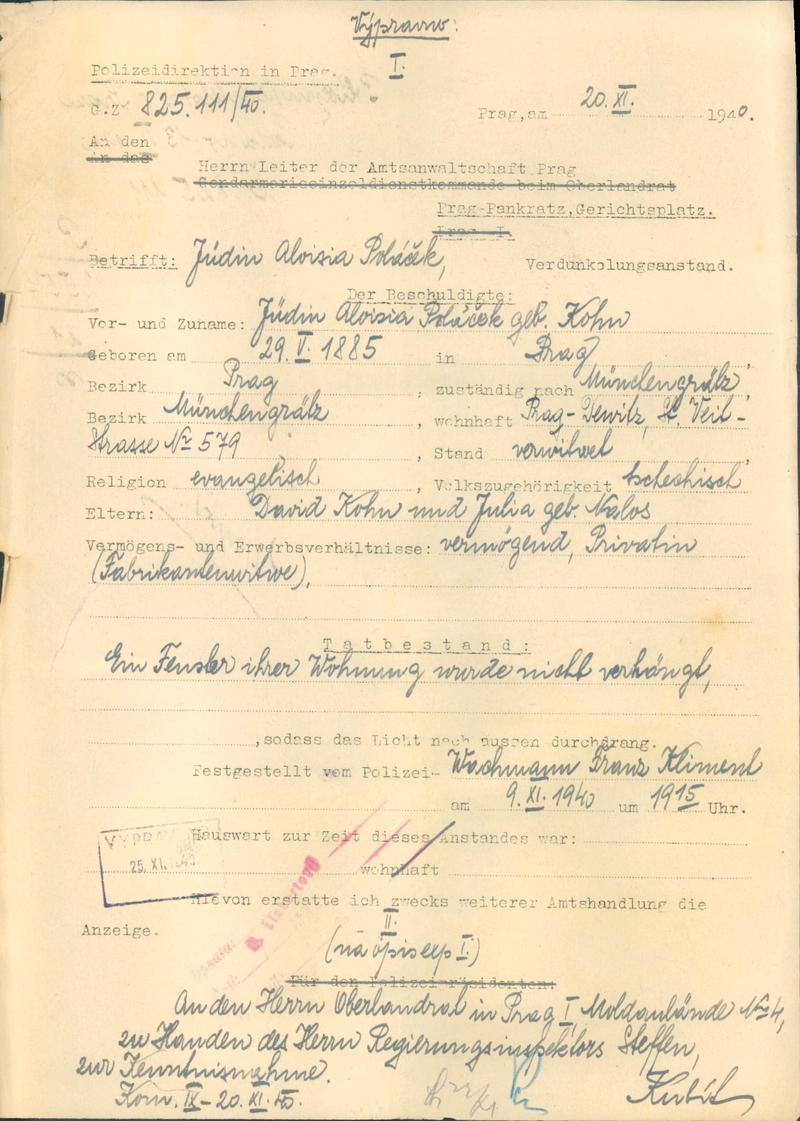 Výpravno:
I.
Polizeidirektion in Prag.
G.Z 825.111/40.
Prag,am 20. XI. 1940.
An den
in das
Herrn Leiter der Amtsanwaltschaft Prag
Gendarmerieeinzeldienstkommando beim Oberlandrat
Prag-Pankratz,Gerichtsplatz.
Prag I.
Betrifft: Jüdin Aloisia Poláček, Verdunkelungsanstand.
Der Beschuldigte:
Vor- und Zuname: Jüdin Aloisia Poláček geb. Kohn
Geboren am 29. V. 1885 in Prag
Bezirk Prag , zuständig nach Münchengrätz,
Bezirk Münchengrätz , wohnhaft Prag-Dewitz, St. Veit-
Strasse No 579 , Stand verwitwet,
Religion evangelisch , Volkszugehörigkeit tschechisch,
Eltern: David Kohn und Julia geb. Nalos
Vermögens- und Erwerbsverhältnisse: vermögend, Privatin
(Fabrikantenwitwe),
Tatbestand:
Ein Fenster ihrer Wohnung wurde nicht verhängt,
,sodass das Licht nach aussen durchdrang.
Festgestellt vom Polizei- Wachmann Franz Kliment
am 9. XI. 1940 um 19 15 Uhr.
Hauswart zur Zeit dieses Anstandes war:
VYPRAV
25. XI. 1940
wohnhaft
Hievon erstatte ich zwecks weiterer Amtshandlung die
Anzeige.
II.
(na opis exp I.)
Für den Polizeipräsidenten:
An den Herrn Oberlandrat in Prag I Moldaulände No 4,
zu Handen des Herrn Regierungsinspektors Steffen,
zur Kenntnisnahme.
Kom. IX - 20. XI. 40.
Kubát